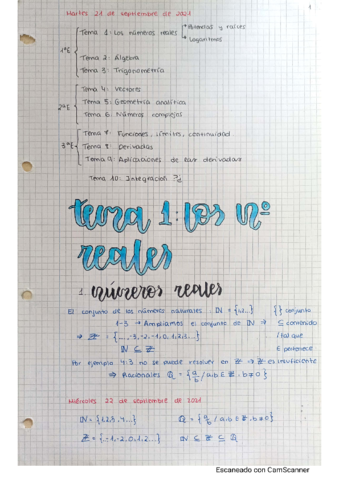 Martes 21 de septiembre de 2021
1
1ªE
Tema 1: Los números reales
Potencias y raíces
Logaritmos
Tema 2: Álgebra
Tema 3: Trigonometría
2ªE
Tema 4: Vectores
Tema 5: Geometría analítica
Tema 6: Números complejos
3ªE
Tema 7: Funciones, límites, continuidad
Tema 8: Derivadas
Tema 9: Aplicaciones de las derivadas
Tema 10: Integración
tema 1: los nº
reales
1. números reales
El conjunto de los números naturales
{} conjunto
1-3 → Ampliamos el conjunto de ℕ ⇒
⊆ contenido
⇒ ℤ = {..., -3, -2, -1, 0, 1, 2, ...}
/ tal que
ℕ ⊆ ℤ
∈ pertenece
Por ejemplo 4:3 no se puede resolver en ℤ ⇒ ℤ es insuficiente
⇒ Racionales ℚ = {a/b / a, b ∈ ℤ, b ≠ 0}
Miércoles 22 de septiembre de 2021
ℕ = {1, 2, 3, 4...}
ℚ = {a/b / a, b ∈ ℤ, b ≠ 0}
ℤ = {..., -1, -2, 0, 1, 2...}
ℕ ⊆ ℤ ⊆ ℚ
Escaneado con CamScanner